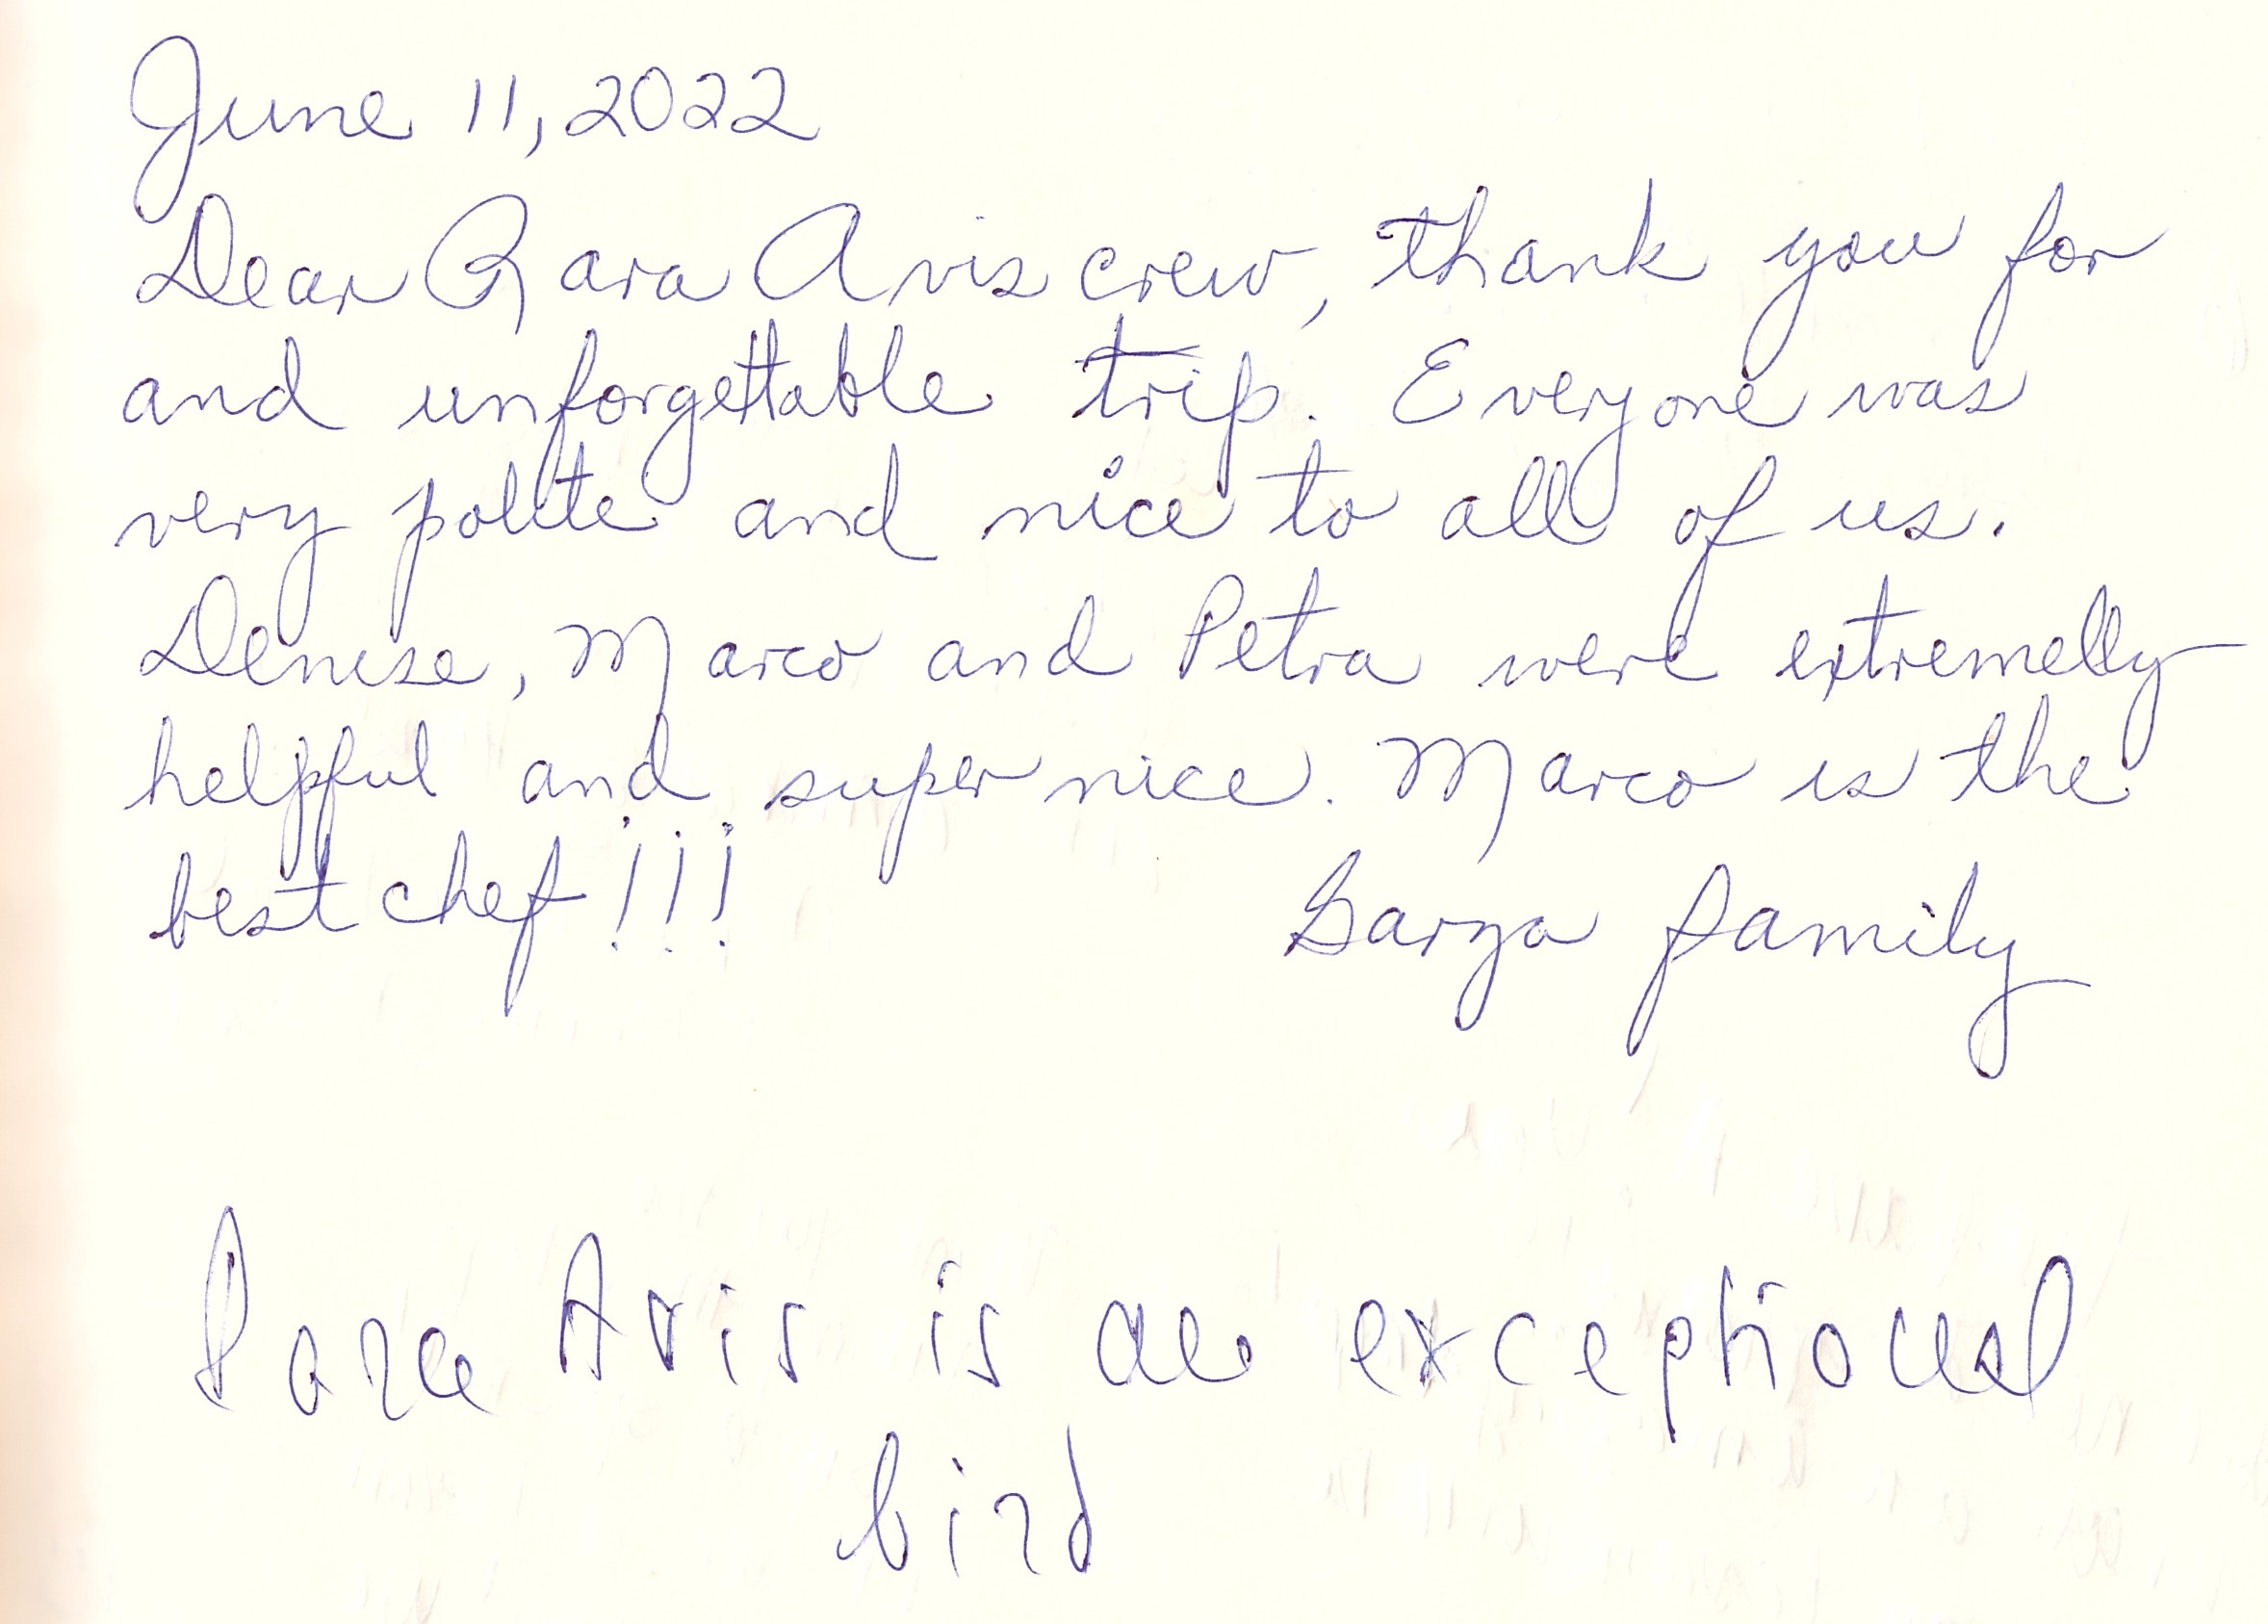 June 11, 2022
Dear Rara Avis crew, thank you for
and unforgettable trip. Everyone was
very polite and nice to all of us.
Denise, Marco and Petra were extremelly
helpful and super nice. Marco is the
best chef!!!
Garza family
Rara Avis is an exceptional
bird